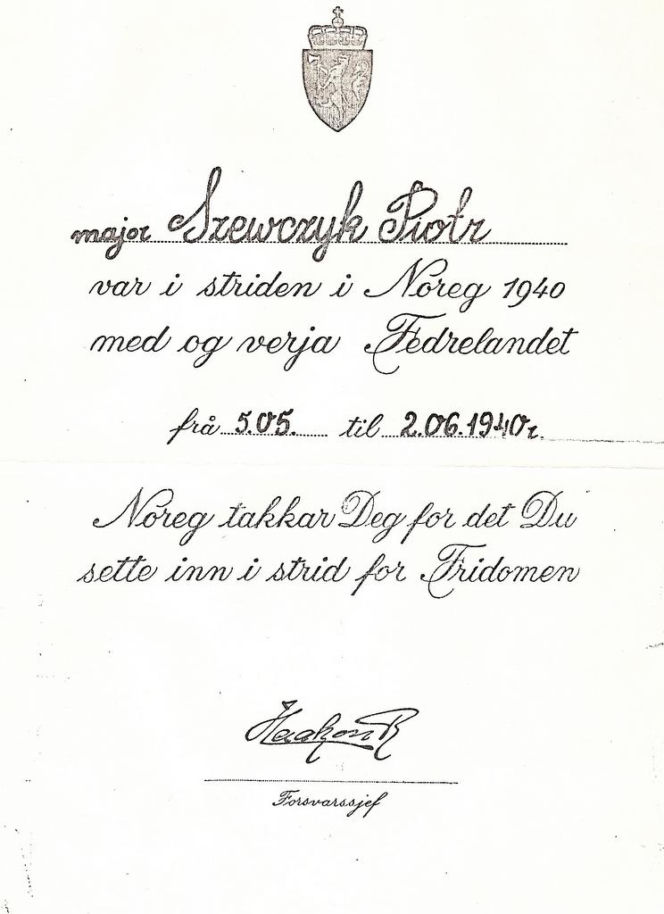 major Szewczyk Piotr
var i striden i Noreg 1940
med og verja Fedrelandet
frå 5.05. til 2.06.1940r.
Noreg takkar Deg for det Du
sette inn i strid for Fridomen
Haakon R
Forsvarssjef